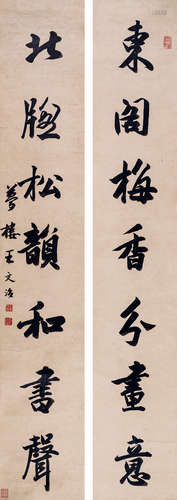 東閣梅香分畫意
北牕松韻和書聲
夢樓王文治